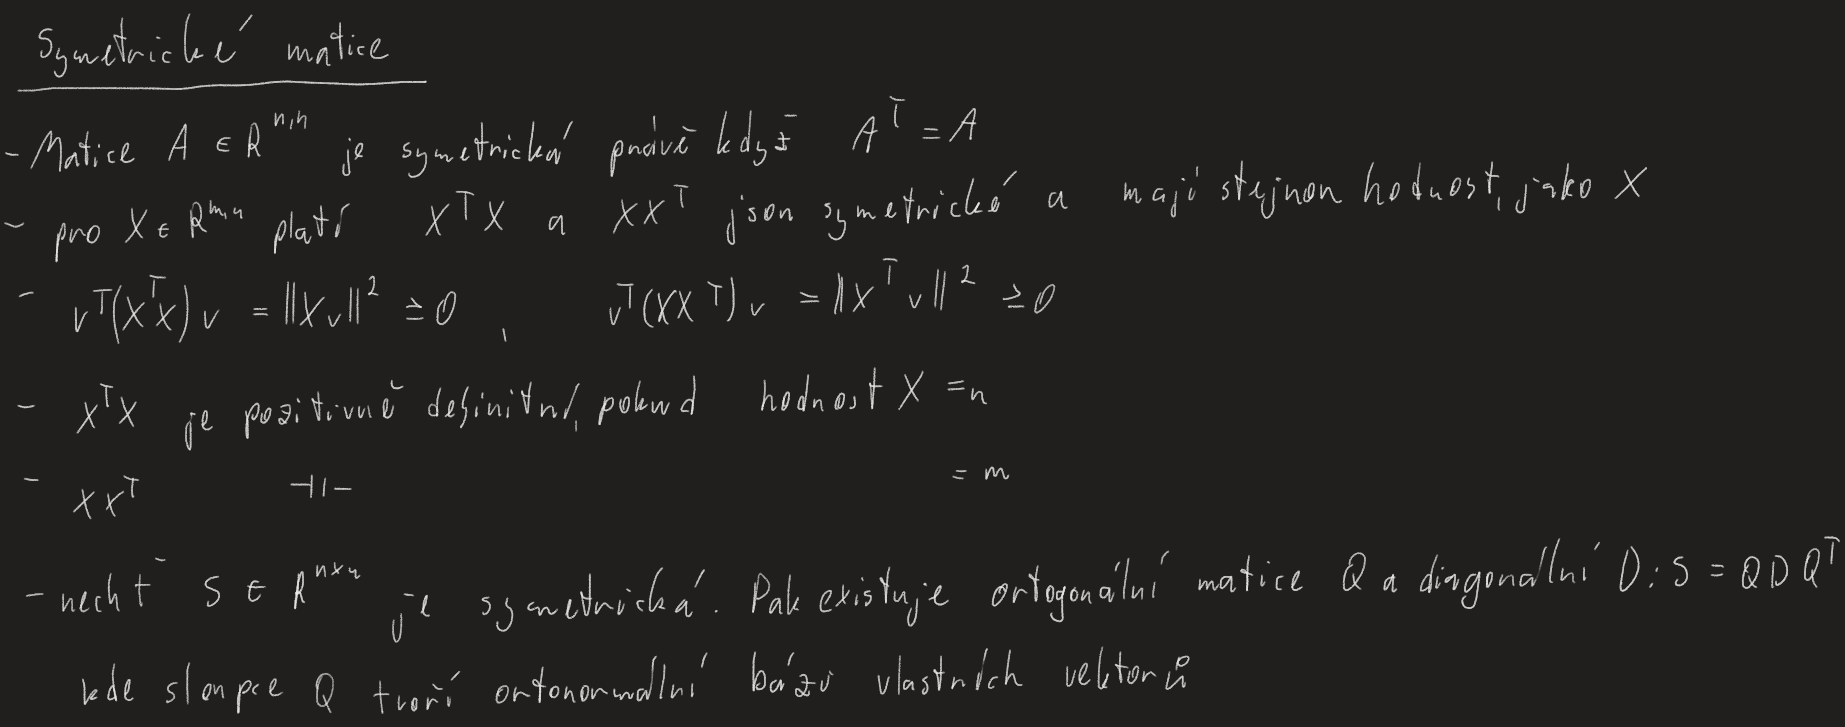 Symetrické matice
- Matice A ∈ R^{n,n} je symetrická právě když A^T = A
- pro X ∈ R^{m,n} platí X^T X a XX^T jsou symetrické a mají stejnou hodnost, jako X
- v^T(X^T X)v = ||Xv||^2 ≥ 0, v^T(XX^T)v = ||X^T v||^2 ≥ 0
- X^T X je pozitivně definitní, pokud hodnost X = n
- XX^T -||- = m
- nechť S ∈ R^{n×n} je symetrická. Pak existuje ortogonální matice Q a diagonální D: S = QDQ^T
kde sloupce Q tvoří ortonormální bázi vlastních vektorů